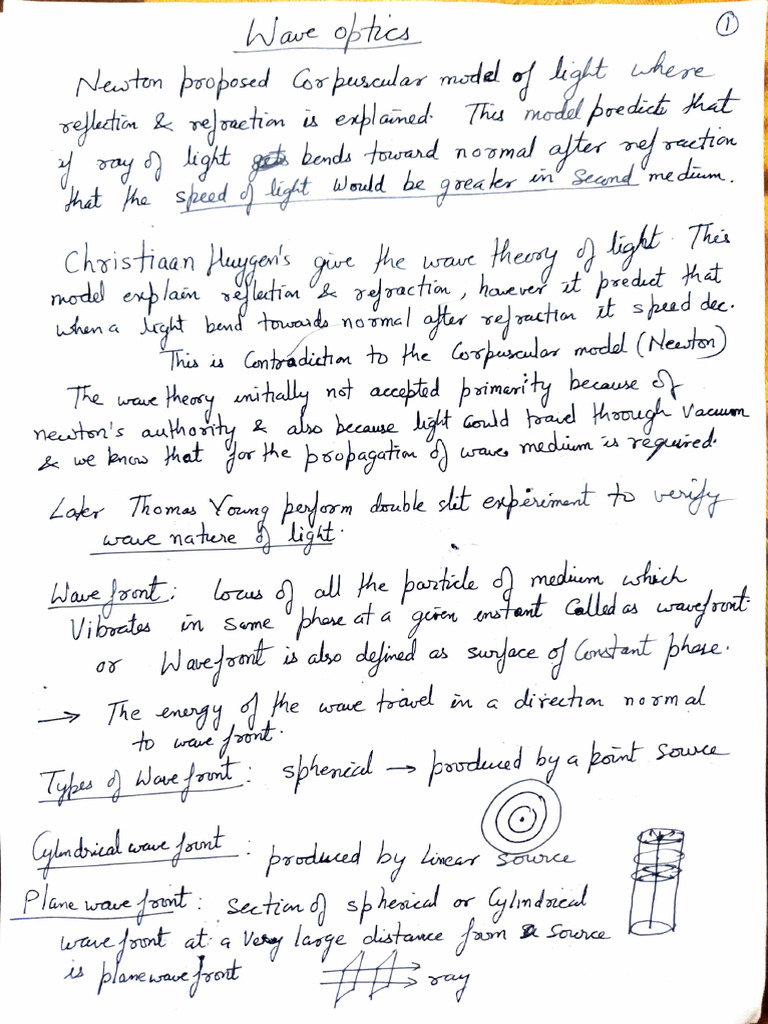 1
Wave optics
Newton proposed Corpuscular model of light where
reflection & refraction is explained. This model predicts that
if ray of light bends toward normal after refraction
that the speed of light would be greater in second medium.
Christiaan Huygen's give the wave theory of light. This
model explain reflection & refraction, however it predict that
when a light bend towards normal after refraction it speed dec.
This is Contradiction to the Corpuscular model (Newton)
The wave theory initially not accepted primarity because of
newton's authority & also because light could travel through vacuum
& we know that for the propagation of wave medium is required.
Later Thomas Young perform double slit experiment to verify
wave nature of light.
Wavefront: locus of all the particle of medium which
vibrates in same phase at a given instant Called as wavefront.
or Wavefront is also defined as surface of Constant phase.
→ The energy of the wave travel in a direction normal
to wave front.
Types of Wavefront: spherical → produced by a point source
Cylindrical wave front: produced by linear source
Plane wave front: section of spherical or Cylindrical
wave front at a very large distance from a source
is plane wave front
ray